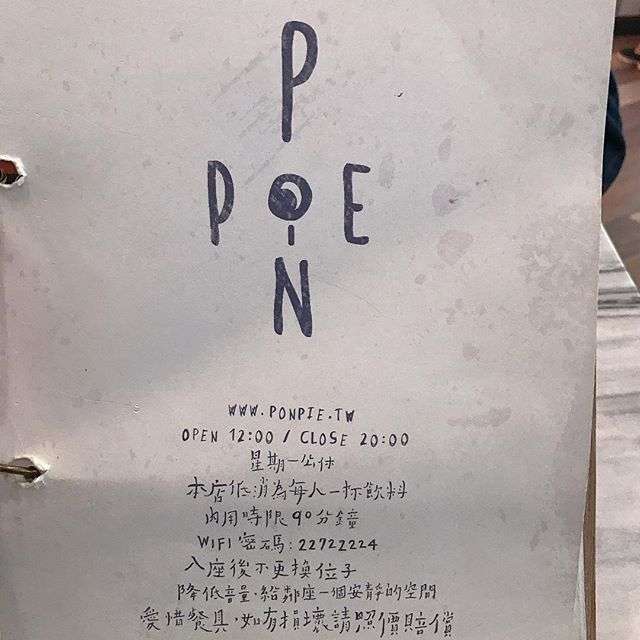 P
P O E
N
WWW.PONPIE.TW
OPEN 12:00 / CLOSE 20:00
星期一公休
本店低消為每人一杯飲料
內用時限90分鐘
WIFI 密碼:22722224
入座後不更換位子
降低音量、給鄰座一個安靜的空間
愛惜餐具,如有損壞請照價賠償